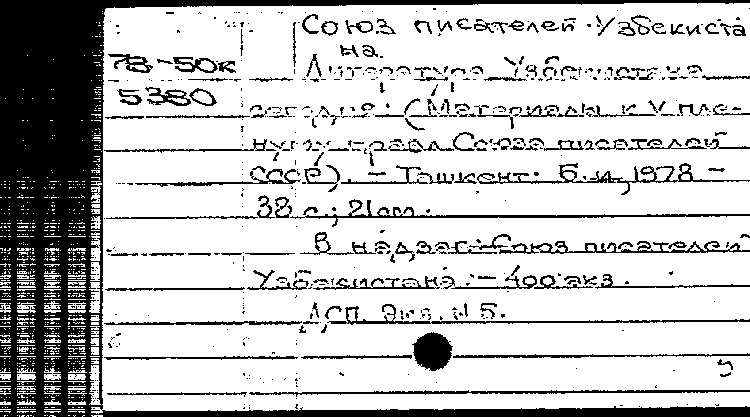 Союз писателей Узбекиста
на
78-50к
Литература Узбекистана
5380
сегодня: (Материалы к V пле-
нуму правл. Союза писателей
СССР). - Ташкент: Б.и., 1978. -
38 с.; 21см.
В надзаг.: Союз писателей
Узбекистана. - 400 экз.
ДСП. Экз. № 5.